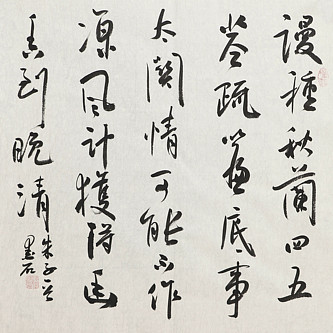 謾種秋蘭四五
莖疏簾底事
太關情可能不作
涼風計護得幽
香到晚清
朱子
墨石